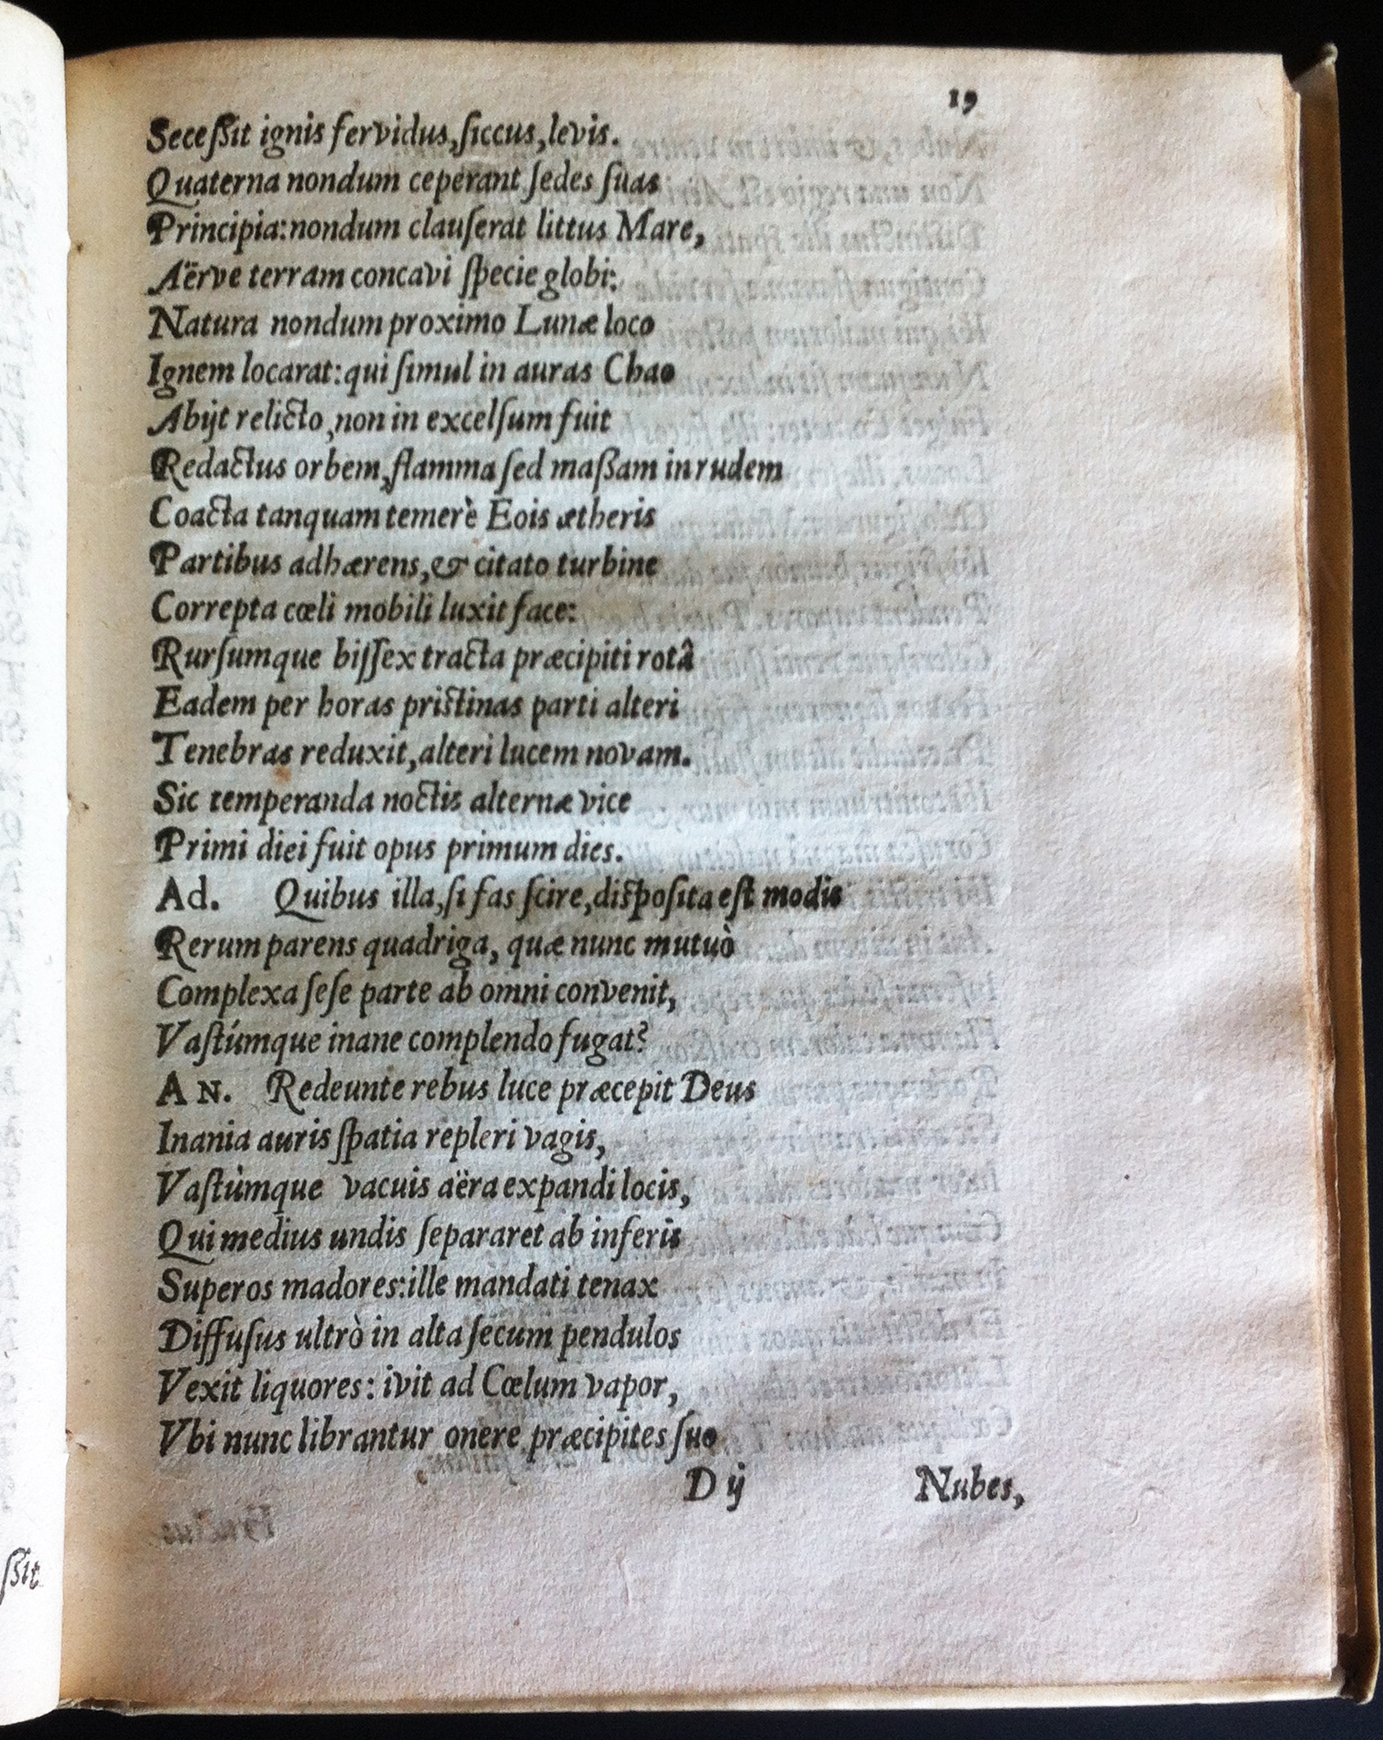 19
Seceſſit ignis fervidus,ſiccus,levis.
Quaterna nondum ceperant ſedes ſuas
Principia:nondum clauſerat littus Mare,
Aërve terram concavi ſpecie globi:
Natura nondum proximo Lunæ loco
Ignem locarat:qui ſimul in auras Chao
Abijt relicto,non in excelſum fuit
Redactus orbem,flamma ſed maßam in rudem
Coacta tanquam temerè Eois ætheris
Partibus adhærens,& citato turbine
Correpta cœli mobili luxit face:
Rurſumque biſſex tracta præcipiti rotâ
Eadem per horas priſtinas parti alteri
Tenebras reduxit,alteri lucem novam.
Sic temperanda noctis alternæ vice
Primi diei fuit opus primum dies.
Ad. Quibus illa,ſi fas ſcire,diſpoſita eſt modis
Rerum parens quadriga, quæ nunc mutuò
Complexa ſeſe parte ab omni convenit,
Vaſtúmque inane complendo fugat?
AN. Redeunte rebus luce præcepit Deus
Inania auris ſpatia repleri vagis,
Vaſtùmque vacuis aëra expandi locis,
Qui medius undis ſepararet ab inferis
Superos madores:ille mandati tenax
Diffuſus ultrò in alta ſecum pendulos
Vexit liquores: ivit ad Cœlum vapor,
Vbi nunc librantur onere præcipites ſuo
D ij Nubes,
ſſit.